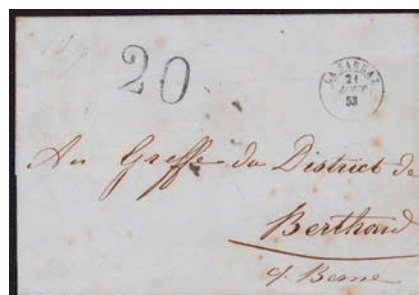 20
LA SARRAZ
21
AOUT
53
Au Greffe du District de
Berthoud
c/ Berne